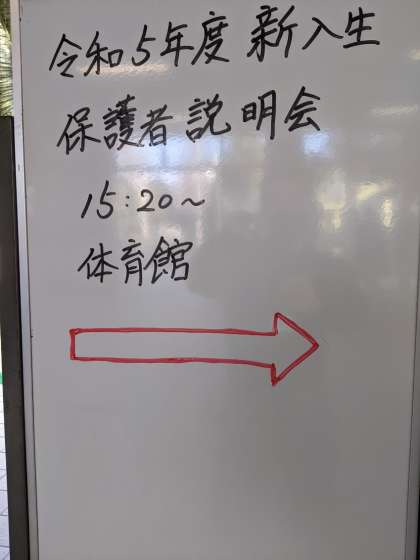 令和5年度 新入生
保護者説明会
15:20~
体育館